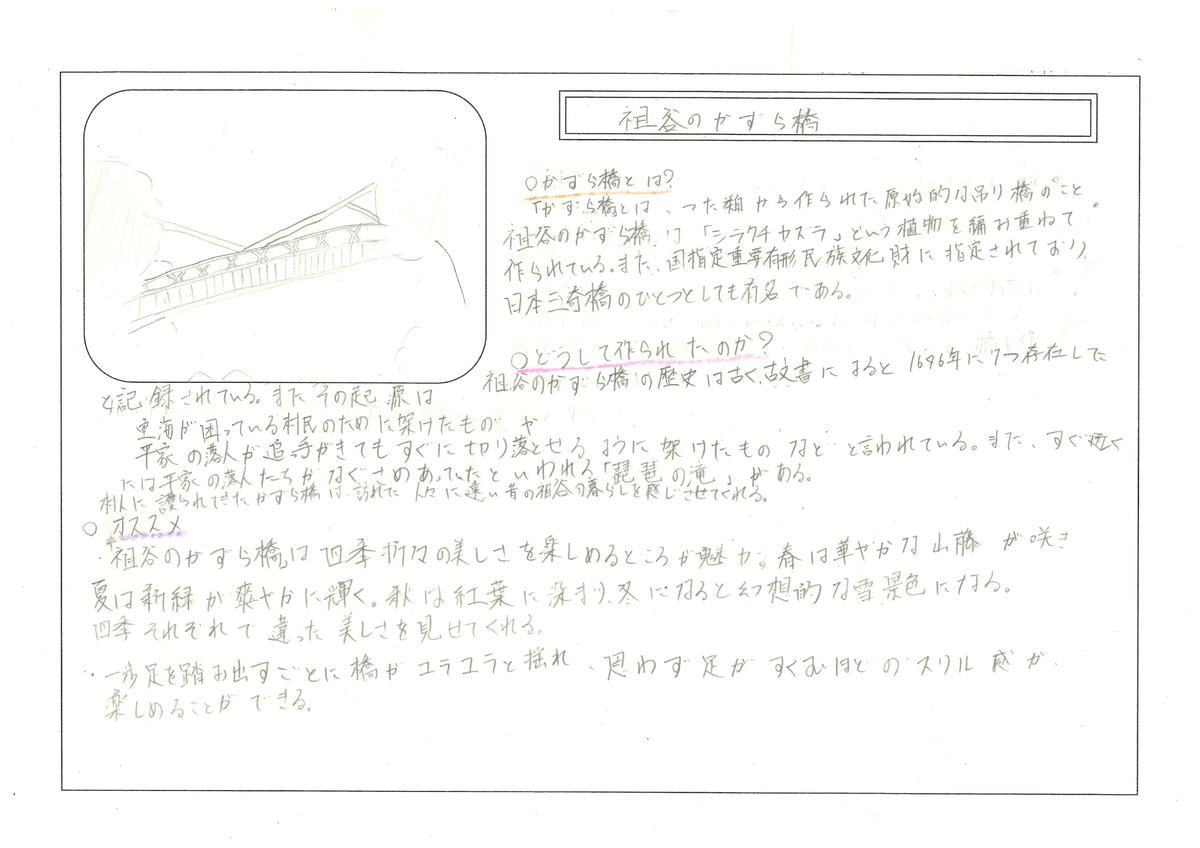 祖谷のかずら橋
○かずら橋とは?
「かずら橋とは、つた類から作られた原始的な吊り橋のこと。
祖谷のかずら橋は「シラクチカズラ」という植物を編み重ねて
作られている。また、国指定重要有形民族文化財に指定されており、
日本三奇橋のひとつとしても有名である。
○どうして作られたのか?
祖谷のかずら橋の歴史は古く、古文書によると1646年に7つ存在した
と記録されている。またその起源は
空海が困っている村民のために架けたものや
平家の落人が追っ手がきてもすぐに切り落とせるように架けたものなどと言われている。また、すぐ近く
には平家の落人たちがなぐさめあっていたといわれる「琵琶の滝」がある。
村人に護られてきたかずら橋は訪れた人々に遠い昔の祖谷の暮らしを感じさせてくれる。
○オススメ
・祖谷のかずら橋は四季折々の美しさを楽しめるところが魅力。春は華やかな山藤が咲き
夏は新緑が爽やかに輝く。秋は紅葉に染まり、冬になると幻想的な雪景色になる。
四季それぞれで違った美しさを見せてくれる。
・一歩足を踏み出すごとに橋がユラユラと揺れ、思わず足がすくむほどのスリル感が
楽しめることができる。